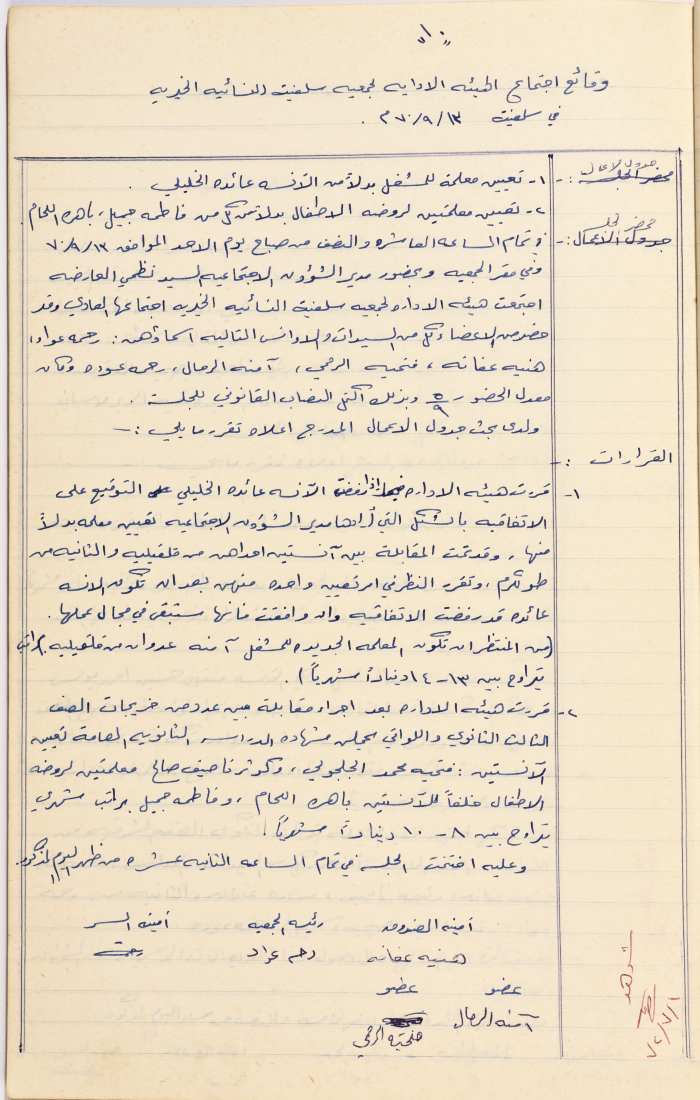 وقائع اجتماع الهيئه الاداريه لجمعيه سلفيت النسائيه الخيريه
في سلفيت ١٣/٩/٧٠ م .
جدول الاعمال :-
١- تعيين معلمة للمشغل بدلاً من الآنسه عائده الخليلي .
٢- تعيين معلمتين لروضه الاطفال بدلاً من كل من فاطمه جميل، باهره اللحام.
محضر الجلسه
جدول الاعمال :-
في تمام الساعه العاشره والنصف من صباح يوم الاحد الموافق ١٣/٩/٧٠
وفي مقر الجمعيه وبحضور مدير الشؤون الاجتماعيه السيد نظمي العارضه
اجتمعت هيئه الاداره لجمعيه سلفيت النسائيه الخيريه اجتماعها العادي وقد
حضر من الاعضاء كل من السيدات والاوانس التاليه اسماؤهن : رحمه عواد،
هنيه عفانه ، فتحيه الرمحي ، آمنه الرمال ، رحمه عوده وكان
معدل الحضور ٥/٩ وبذلك اكتمل النصاب القانوني للجلسه .
ولدى بحث جدول الاعمال المدرج اعلاه تقرر ما يلي :-
القرارات :-
١- قررت هيئه الاداره اذا رفضت الآنسه عائده الخليلي التوقيع على
الاتفاقيه بالشكل التي أرادها مدير الشؤون الاجتماعيه تعيين معلمه بدلاً
منها ، وقد تمت المقابلة بين آنستين احداهن من قلقيليه والثانيه من
طولكرم ، وتقرر النظر في امر تعيين واحده منهن بعد ان تكون الانسه
عائده قد رفضت الاتفاقيه وان وافقت فانها ستبقى في مجال عملها .
(من المنتظر ان تكون المعلمه الجديده للمشغل آمنه عدوان من قلقيليه) براتب
يتراوح بين ١٣-١٤ ديناراً شهرياً) .
٢- قررت هيئه الاداره بعد اجراء مقابلة بين عدد من خريجات الصف
الثالث الثانوي واللواتي يحملن شهاده الدراسه الثانويه العامة تعيين
الآنستين : فتحيه محمد الجلجولي ، وكوثر ناصيف صالح معلمتين لروضه
الاطفال خلفاً للآنستين باهره اللحام ، وفاطمه جميل براتب شهري
يتراوح بين ٨-١٠ ديناراً شهرياً .
وعليه اختتمت الجلسه في تمام الساعه الثانيه عشره من ظهر اليوم المذكور.
أمينه الصندوق رئيسه الجمعيه أمينه السر
هنيه عفانه رحمه عواد رحمه
عضو عضو
آمنه الرمال فتحيه الرمحي
شوهد
٧٢/٧/١